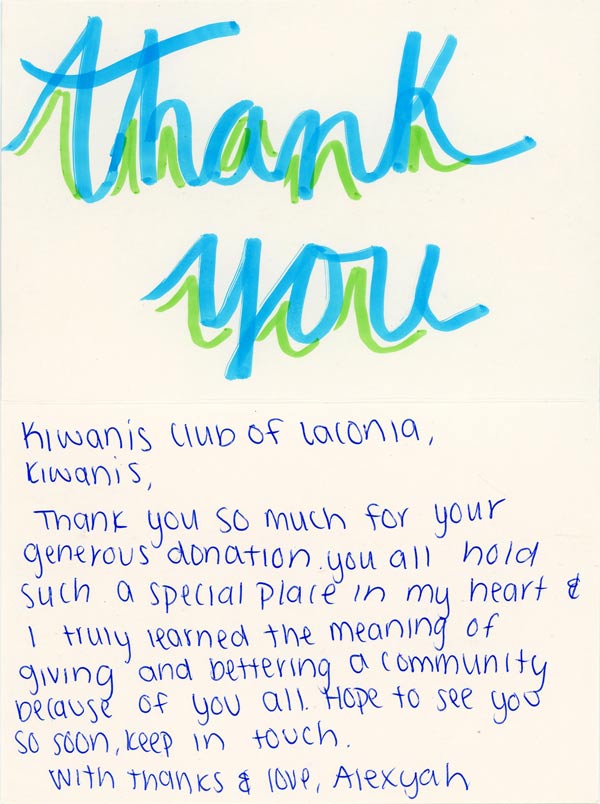 Thank
you
Kiwanis Club of Laconia,
Kiwanis,
Thank you so much for your
generous donation. you all hold
such a special place in my heart &
I truly learned the meaning of
giving and bettering a community
because of you all. Hope to see you
so soon, keep in touch.
With thanks & love, Alexyah